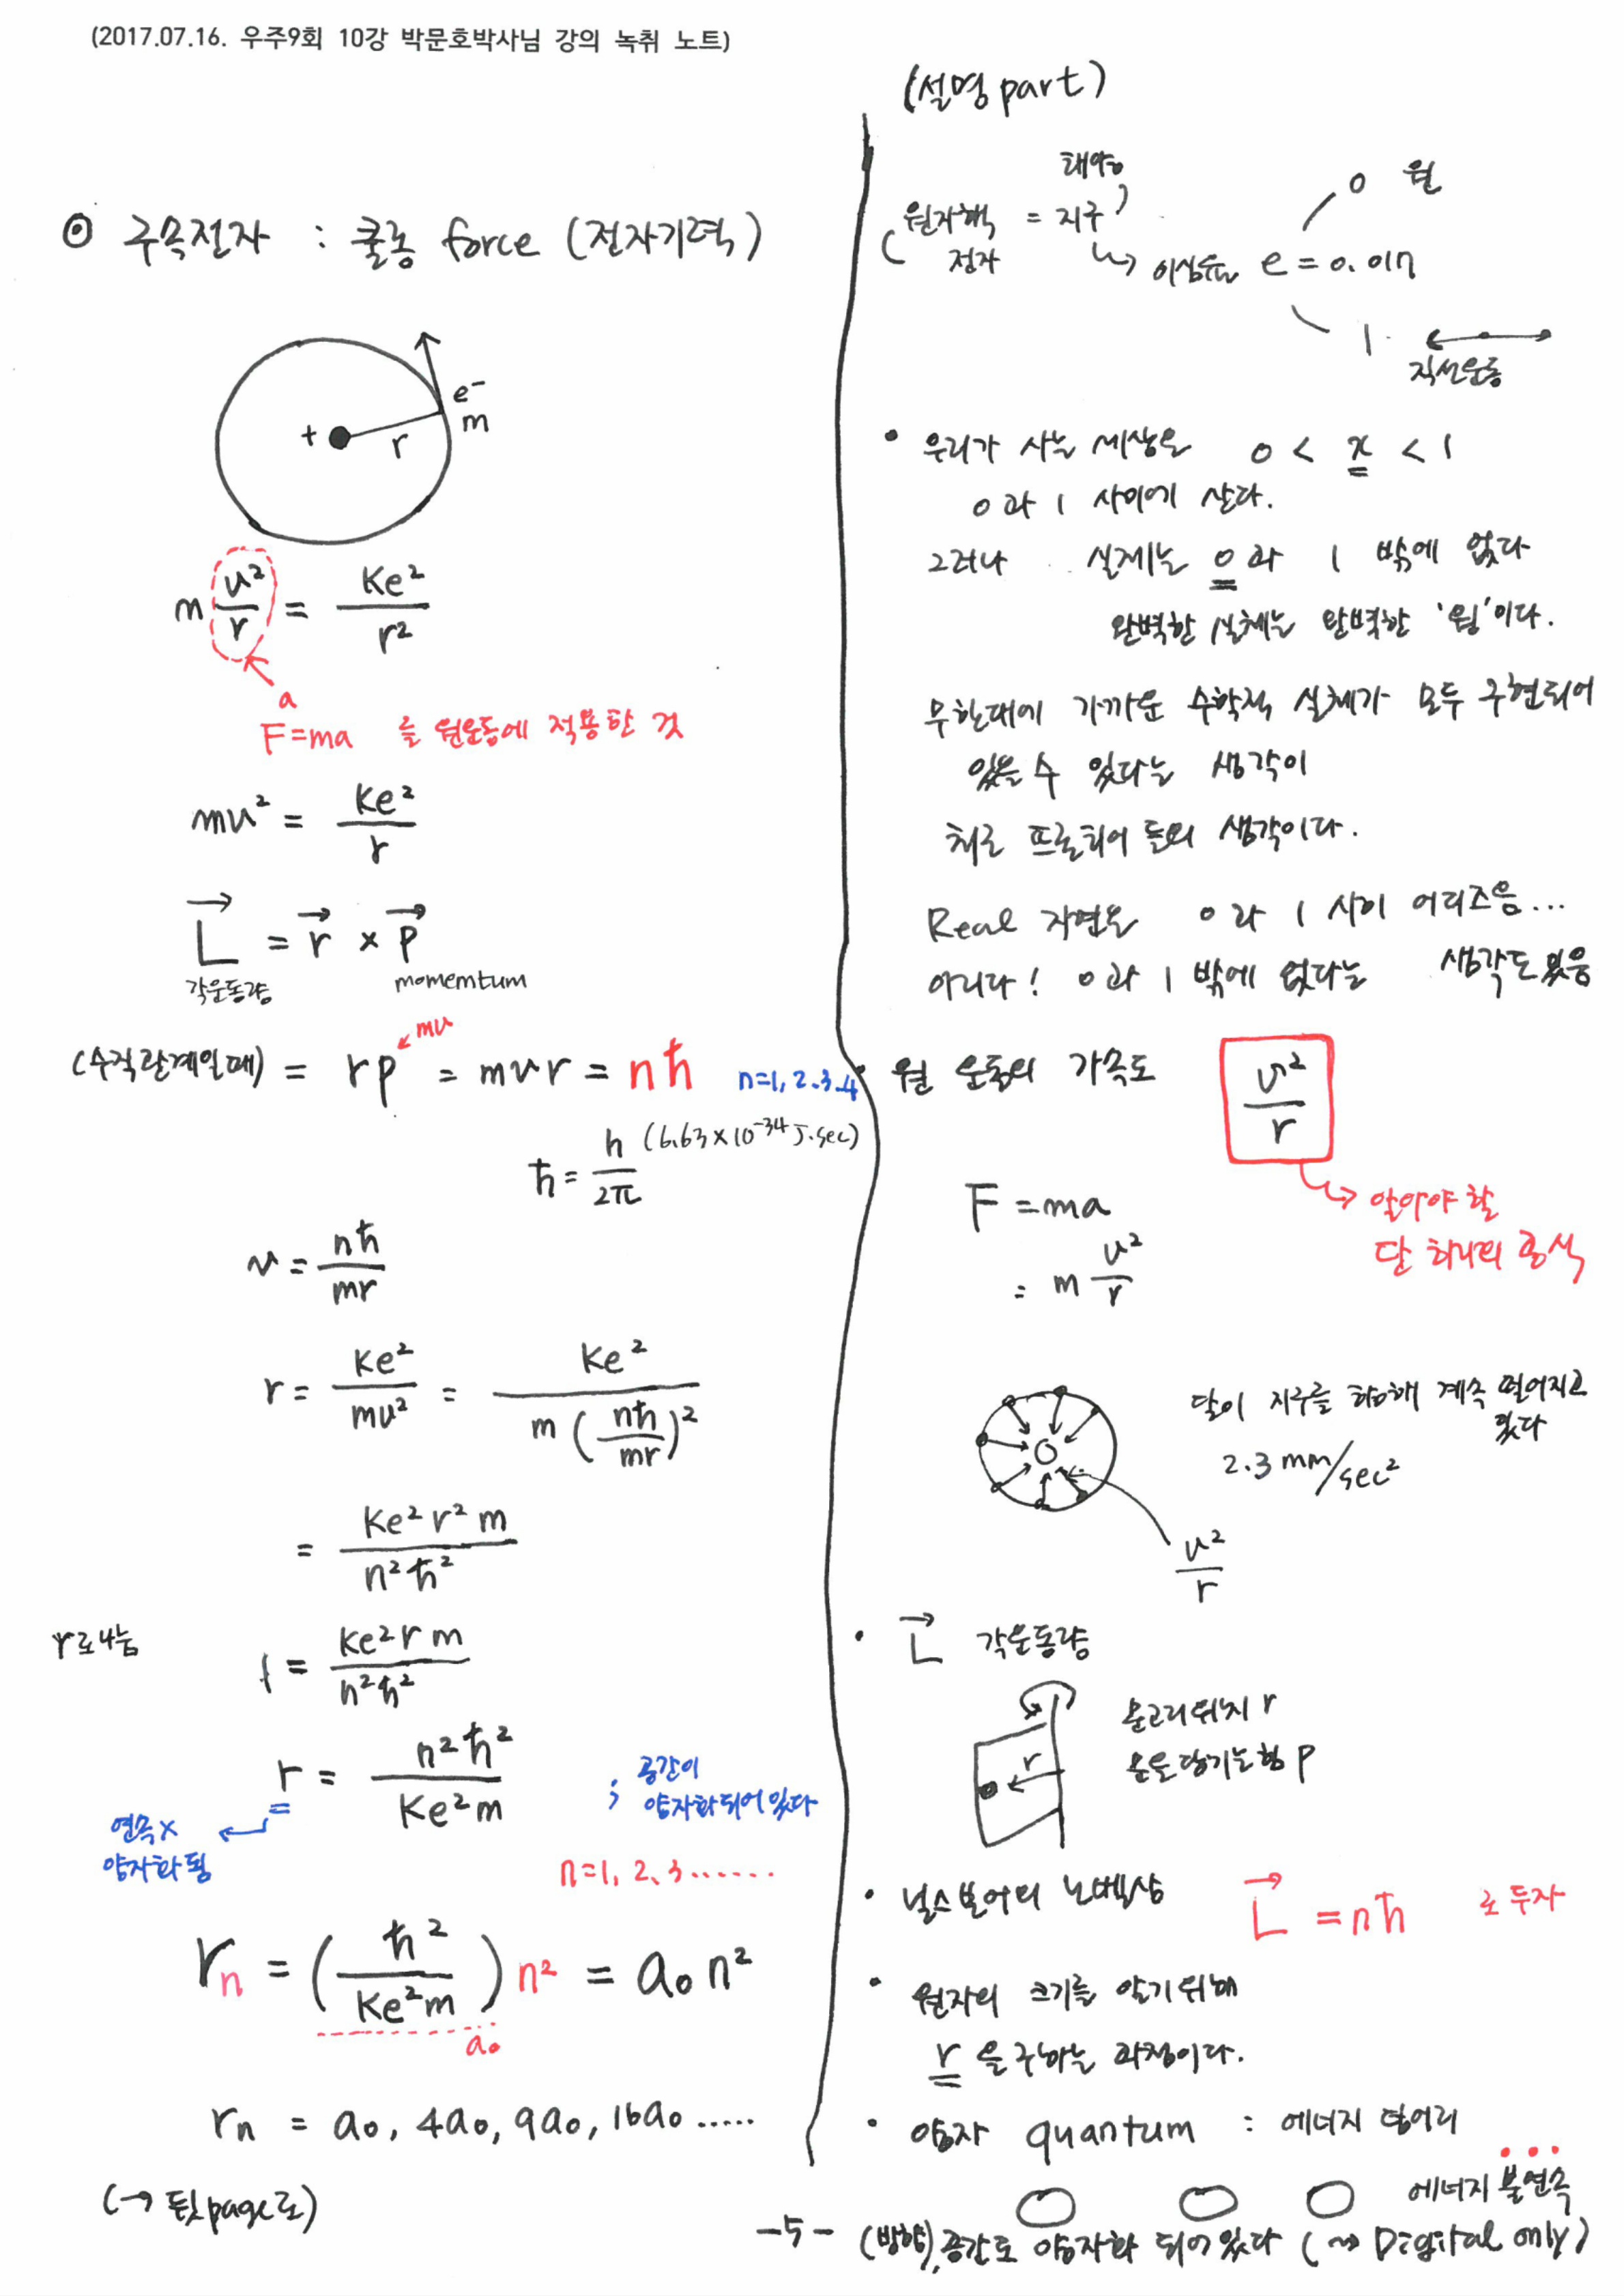 (2017.07.16. 우주9회 10강 박문호박사님 강의 녹취 노트)
⊙ 구속전자 : 쿨롱 force (전자기력)
e⁻
m
+
r
m v²/r = Ke²/r²
a
F=ma 를 원운동에 적용한 것
mv² = Ke²/r
L⃗ = r⃗ × p⃗
각운동량
momemtum
(수직관계일때) = rp = mvr = nħ n=1, 2, 3, 4
mv
ħ = h/2π (6.63×10⁻³⁴ J·sec)
v = nħ/mr
r = Ke²/mv² = Ke²/m(nħ/mr)²
= Ke²r²m/n²ħ²
r로 나눔
1 = Ke²rm/n²ħ²
r = n²ħ²/Ke²m ; 공간이
양자화되어있다
연속×
양자화 됨
n=1, 2, 3 ......
rn = (ħ²/Ke²m) n² = a₀n²
a₀
rn = a₀, 4a₀, 9a₀, 16a₀ .....
(→ 뒷page로)
(설명part)
태양
(원자핵 = 지구)
전자
↳ 이심률 e = 0.017
0 원
1 직선운동
• 우리가 사는 세상은 0 < x < 1
0과 1 사이에 산다.
그러나 실제는 0과 1 밖에 없다
완벽한 실체는 완벽한 '원'이다.
무한대에 가까운 수학적 실체가 모두 구현되어
있을 수 있다는 생각이
최근 프론티어 들의 생각이다.
Real 자연은 0과 1 사이 어디즈음...
아니다! 0과 1 밖에 없다는 생각도 있음
• 원 운동의 가속도 v²/r
알아야 할
단 하나의 공식
F = ma
= m v²/r
달이 지구를 향해 계속 떨어지고
있다
2.3 mm/sec²
v²/r
• L⃗ 각운동량
r
문고리위치 r
문을 당기는 힘 p
• 닐스보어의 노벨상 L⃗ = nħ 로 투자
• 원자의 크기를 알기위해
r을 구하는 과정이다.
• 양자 quantum : 에너지 덩어리
에너지 불연속
(방향), 공간도 양자화 되어 있다 (~> Digital only)
-5-